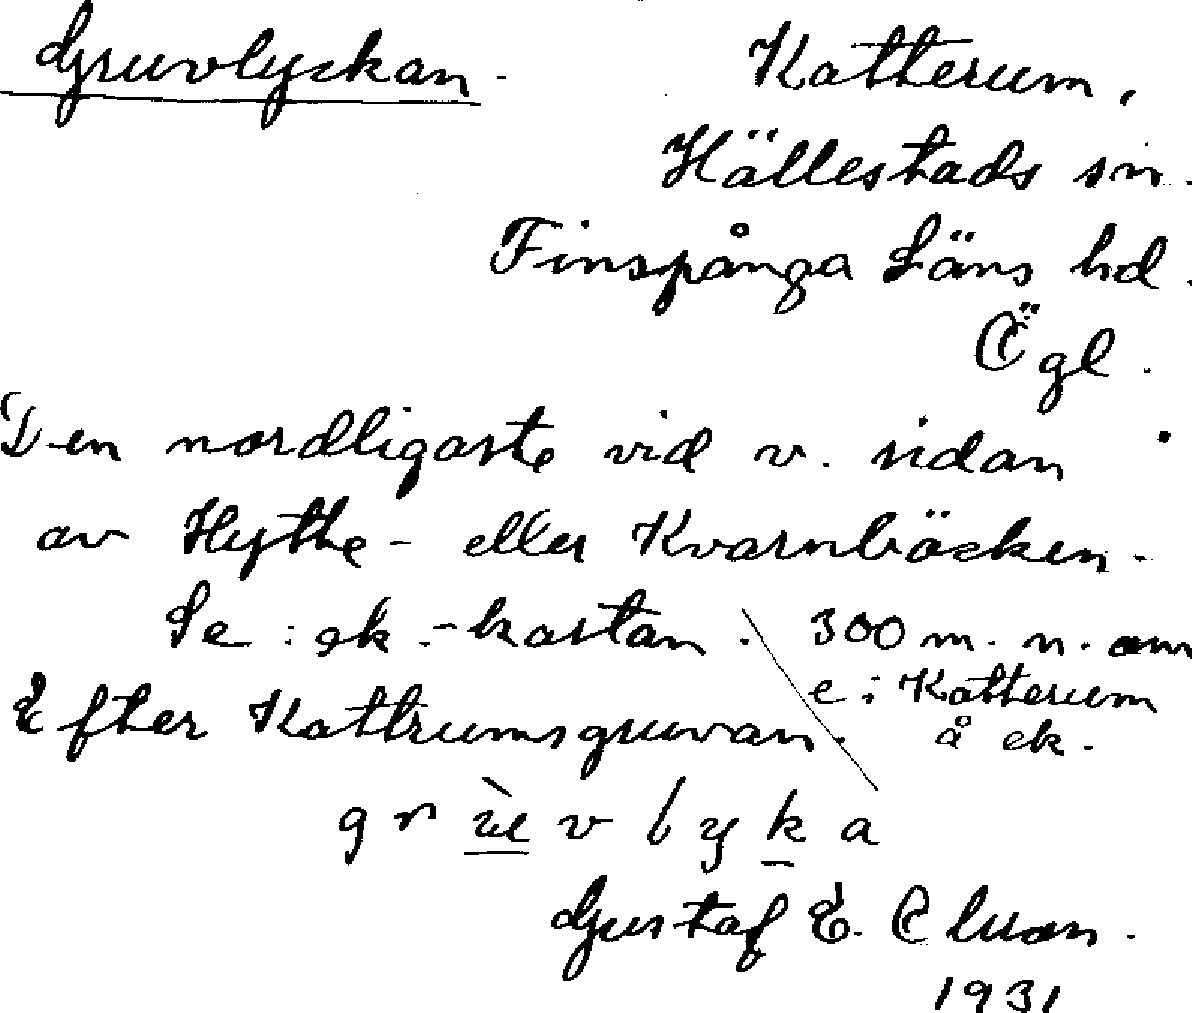 Gruvlyckan. Katterum,
Hällestads sn.
Finspånga Läns hd.
Ögl.
Den nordligaste vid v. sidan
av Hytte- eller Kvarnbäcken.
Se: ek.-kartan. 300 m. n. om
e i Katterum
å ek.
Efter Kattrumsgruvan.
Gustaf E. Olson.
1931